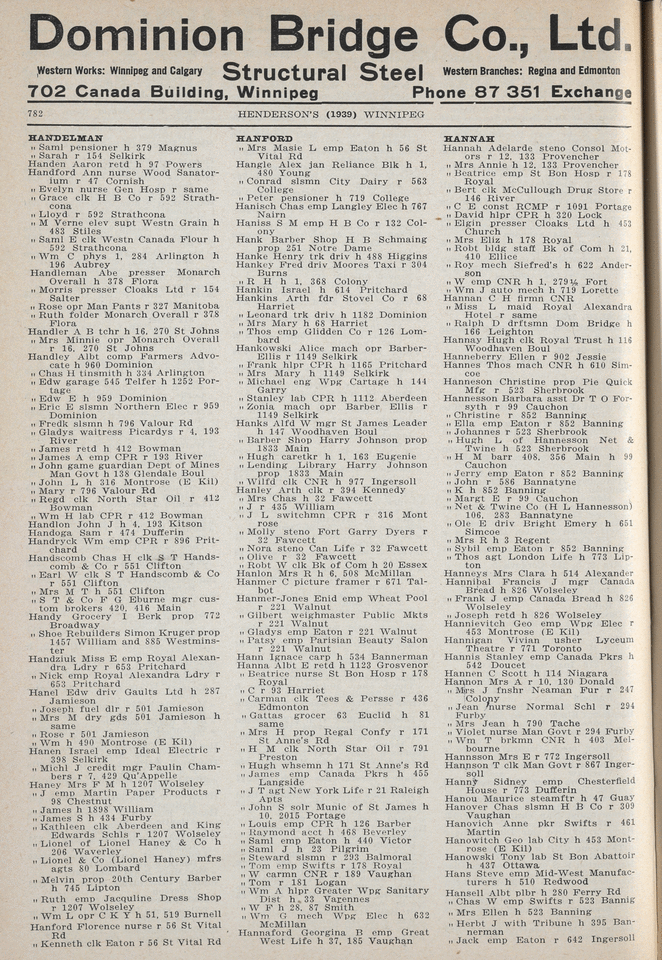 Dominion Bridge Co., Ltd.
Western Works: Winnipeg and Calgary Structural Steel Western Branches: Regina and Edmonton
702 Canada Building, Winnipeg Phone 87 351 Exchange
782 HENDERSON'S (1939) WINNIPEG
HANDELMAN
" Saml pensioner h 379 Magnus
" Sarah r 154 Selkirk
Handen Aaron retd h 97 Powers
Handford Ann nurse Wood Sanator-
ium r 47 Cornish
" Evelyn nurse Gen Hosp r same
" Grace clk H B Co r 592 Strath-
cona
" Lloyd r 592 Strathcona
" M Verne elev supt Westn Grain h
483 Stiles
" Saml E clk Westn Canada Flour h
592 Strathcona
" Wm C phys 1, 284 Arlington h
196 Aubrey
Handleman Abe presser Monarch
Overall h 378 Flora
" Morris presser Cloaks Ltd r 154
Salter
" Rose opr Man Pants r 327 Manitoba
" Ruth folder Monarch Overall r 378
Flora
Handler A B tchr h 16, 270 St Johns
" Mrs Minnie opr Monarch Overall
r 16, 270 St Johns
Handley Albt comp Farmers Advo-
cate h 960 Dominion
" Chas H tinsmith h 334 Arlington
" Edw garage 545 Telfer h 1252 Por-
tage
" Edw E h 959 Dominion
" Eric E slsmn Northern Elec r 959
Dominion
" Fredk slsmn h 796 Valour Rd
" Gladys waitress Picardys r 4, 193
River
" James retd h 412 Bowman
" James A emp CPR r 193 River
" John game guardian Dept of Mines
Man Govt h 138 Glendale Boul
" John L h 316 Montrose (E Kil)
" Mary r 796 Valour Rd
" Regd clk North Star Oil r 412
Bowman
" Wm H lab CPR r 412 Bowman
Handlon John J h 4, 193 Kitson
Handoga Sam r 474 Dufferin
Handryck Wm emp CPR r 896 Prit-
chard
Handscomb Chas H clk S T Hands-
comb & Co r 551 Clifton
" Earl W clk S T Handscomb & Co
r 551 Clifton
" Mrs M T h 551 Clifton
" S T & Co F G Eburne mgr cus-
tom brokers 420, 416 Main
Handy Grocery I Berk prop 772
Broadway
" Shoe Rebuilders Simon Kruger prop
1457 William and 885 Westmins-
ter
Handziuk Miss E emp Royal Alexan-
dra Ldry r 653 Pritchard
" Nick emp Royal Alexandra Ldry r
653 Pritchard
Hanel Edw driv Gaults Ltd h 287
Jamieson
" Joseph fuel dlr r 501 Jamieson
" Mrs M dry gds 501 Jamieson h
same
" Rose r 501 Jamieson
" Wm h 490 Montrose (E Kil)
Hanen Israel emp Ideal Electric r
398 Selkirk
" Michl J credit mgr Paulin Cham-
bers r 7, 429 Qu'Appelle
Haney Mrs F M h 1207 Wolseley
" J emp Martin Paper Products r
98 Chestnut
" James h 1898 William
" James S h 434 Furby
" Kathleen clk Aberdeen and King
Edwards Schls r 1207 Wolseley
" Lionel of Lionel Haney & Co h
206 Waverley
" Lionel & Co (Lionel Haney) mfrs
agts 80 Lombard
" Melvin prop 20th Century Barber
h 745 Lipton
" Ruth emp Jacquline Dress Shop
r 1207 Wolseley
" Wm L opr C K Y h 51, 519 Burnell
Hanford Florence nurse r 56 St Vital
Rd
" Kenneth clk Eaton r 56 St Vital Rd
HANFORD
" Mrs Masie L emp Eaton h 56 St
Vital Rd
Hangle Alex jan Reliance Blk h 1,
480 Young
" Conrad slsmn City Dairy r 563
College
" Peter pensioner h 719 College
Hanisch Chas emp Langley Elec h 767
Nairn
Haniss S M emp H B Co r 132 Col-
ony
Hank Barber Shop H B Schmaing
prop 251 Notre Dame
Hanke Henry trk driv h 488 Higgins
Hankey Fred driv Moores Taxi r 304
Burns
" R H h 1, 368 Colony
Hankin Israel h 614 Pritchard
Hankins Arth fdr Stovel Co r 68
Harriet
" Leonard trk driv h 1182 Dominion
" Mrs Mary h 68 Harriet
" Thos emp Glidden Co r 126 Lom-
bard
Hankowski Alice mach opr Barber-
Ellis r 1149 Selkirk
" Frank hlpr CPR h 1165 Pritchard
" Mrs Mary h 1149 Selkirk
" Michael eng Wpg Cartage h 144
Garry
" Stanley lab CPR h 1112 Aberdeen
" Zonia mach opr Barber Ellis r
1149 Selkirk
Hanks Alfd W mgr St James Leader
h 147 Woodhaven Boul
" Barber Shop Harry Johnson prop
1833 Main
" Hugh caretkr h 1, 163 Eugenie
" Lending Library Harry Johnson
prop 1833 Main
" Wilfd clk CNR h 977 Ingersoll
Hanley Arth clk r 394 Kennedy
" Mrs Chas h 32 Fawcett
" J r 435 William
" J L switchmn CPR r 316 Mont
rose
" Molly steno Fort Garry Dyers r
32 Fawcett
" Nora steno Can Life r 32 Fawcett
" Olive r 32 Fawcett
" Robt W clk Bk of Com h 20 Essex
Hanlon Mrs R h 6, 508 McMillan
Hanmer C picture framer r 671 Tal-
bot
Hanmer-Jones Enid emp Wheat Pool
r 221 Walnut
" Gilbert weighmaster Public Mkts
r 221 Walnut
" Gladys emp Eaton r 221 Walnut
" Patsy emp Parisian Beauty Salon
r 221 Walnut
Hann Ignace carp h 534 Bannerman
Hanna Albt E retd h 1123 Grosvenor
" Beatrice nurse St Bon Hosp r 178
Royal
" C r 93 Harriet
" Carman clk Tees & Persse r 436
Edmonton
" Gattas grocer 63 Euclid h 81
same
" Mrs H prop Regal Confy r 171
St Anne's Rd
" H M clk North Star Oil r 791
Preston
" Hugh whsemn h 171 St Anne's Rd
" James emp Canada Pkrs h 455
Langside
" J T agt New York Life r 21 Raleigh
Apts
" John S solr Munic of St James h
10, 2015 Portage
" Louis emp CPR h 126 Barber
" Raymond acct h 468 Beverley
" Saml emp Eaton h 440 Victor
" Saml J h 23 Pilgrim
" Steward slsmn r 293 Balmoral
" Tom emp Swifts r 178 Royal
" W carmn CNR r 189 Vaughan
" Tom r 181 Logan
" Wm A hlpr Greater Wpg Sanitary
Dist h 33 Varennes
" W F h 28, 87 Smith
" Wm G mech Wpg Elec h 632
McMillan
Hannaford Georgina B emp Great
West Life h 37, 185 Vaughan
HANNAH
Hannah Adelarde steno Consol Mot-
ors r 12, 133 Provencher
" Mrs Annie h 12, 133 Provencher
" Beatrice emp St Bon Hosp r 178
Royal
" Bert clk McCullough Drug Store r
146 River
" C E const RCMP r 1091 Portage
" David hlpr CPR h 320 Lock
" Elgin presser Cloaks Ltd h 453
Church
" Mrs Eliz h 178 Royal
" Robt bldg staff Bk of Com h 21,
410 Ellice
" Roy mech Siefred's h 622 Ander-
son
" W emp CNR h 1, 279½ Fort
" Wm J auto mech h 719 Lorette
Hannan C H firmn CNR
" Miss L maid Royal Alexandra
Hotel r same
" Ralph D drftsmn Dom Bridge h
166 Leighton
Hannay Hugh clk Royal Trust h 116
Woodhaven Boul
Hanneberry Ellen r 902 Jessie
Hannes Thos mach CNR h 610 Sim-
coe
Hanneson Christine prop Pie Quick
Mfg r 523 Sherbrook
Hannesson Barbara asst Dr T O For-
syth r 99 Cauchon
" Christine r 852 Banning
" Ella emp Eaton r 852 Banning
" Johannes r 523 Sherbrook
" Hugh L of Hannesson Net &
Twine h 523 Sherbrook
" H M barr 408, 356 Main h 99
Cauchon
" Jerry emp Eaton r 852 Banning
" John r 586 Bannatyne
" K h 852 Banning
" Margt E r 99 Cauchon
" Net & Twine Co (H L Hannesson)
106, 283 Bannatyne
" Ole E driv Bright Emery h 651
Simcoe
" Mrs R h 3 Regent
" Sybil emp Eaton r 852 Banning
" Thos agt London Life h 773 Lip-
ton
Hanneys Mrs Clara h 514 Alexander
Hannibal Francis J mgr Canada
Bread h 826 Wolseley
" Frank J emp Canada Bread h 826
Wolseley
" Joseph retd h 826 Wolseley
Hannievitch Geo emp Wpg Elec r
453 Montrose (E Kil)
Hannigan Vivian usher Lyceum
Theatre r 771 Toronto
Hannis Stanley emp Canada Pkrs h
542 Doucet
Hannen C Scott h 114 Niagara
Hannon Mrs A r 10, 130 Donald
" Mrs J fnshr Neaman Fur r 247
Colony
" Jean nurse Normal Schl r 294
Furby
" Mrs Jean h 790 Tache
" Violet nurse Man Govt r 294 Furby
" Wm T brkmn CNR h 403 Mel-
bourne
Hannsson Mrs E r 772 Ingersoll
Hannson T clk Man Govt r 867 Inger-
soll
Hanny Sidney emp Chesterfield
House r 773 Dufferin
Hanou Maurice steamftr h 47 Guay
Hanover Chas slsmn H B Co r 309
Vaughan
Hanovich Anne pkr Swifts r 461
Martin
Hanowitch Geo lab City h 453 Mont-
rose (E Kil)
Hanowski Tony lab St Bon Abattoir
h 437 Ottawa
Hans Steve emp Mid-West Manufac-
turers h 510 Redwood
Hansell Albt plbr h 280 Ferry Rd
" Chas W emp Swifts r 523 Bannig
" Mrs Ellen h 523 Banning
" Herbt J with Tribune h 395 Ban-
nerman
" Jack emp Eaton r 642 Ingersoll